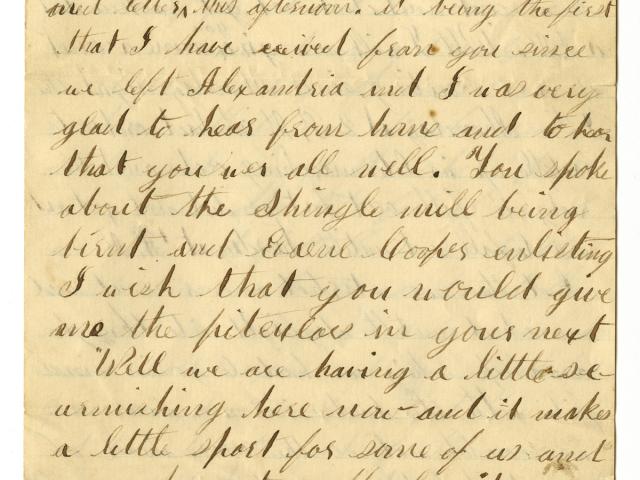 and letter, this afternoon. it being the first
that I have eceived from you since
we left Alexandria and I was very
glad to hear from home and to hear
that you wer all well. "You spoke
about the shingle mill being
birnt and Cooper enlisting
I wish that you would give
me the in your next
"Well we are having a little sc-
urmishing here now and it makes
a little sport for some of us and